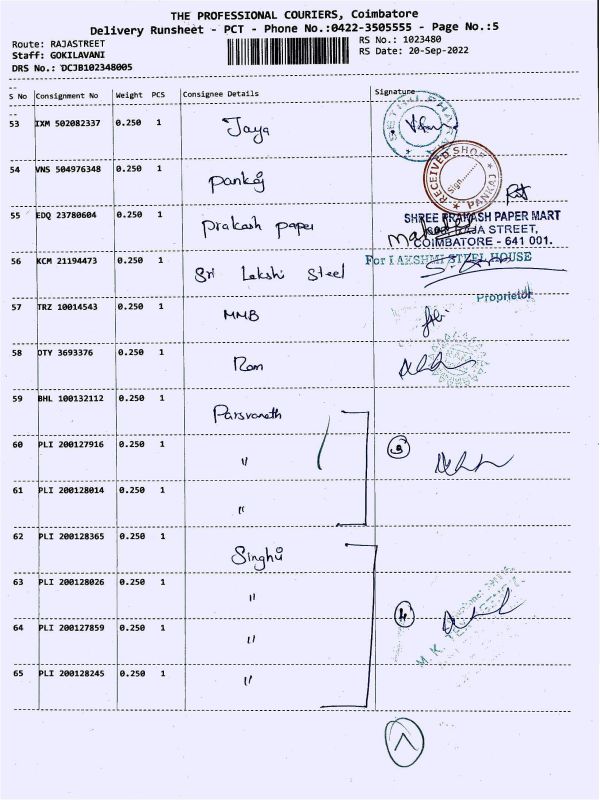 THE PROFESSIONAL COURIERS, Coimbatore
Delivery Runsheet - PCT - Phone No.:0422-3505555 - Page No.:5
Route: RAJASTREET
RS No.: 1023480
Staff: GOKILAVANI
RS Date: 20-Sep-2022
DRS No.: DCJB102348005
S No Consignment No Weight PCS Consignee Details Signature
53 IXM 502082337 0.250 1 Jaya
54 VNS 504976348 0.250 1 Pankaj
RECEIVED SHOP
Sign.........
PANKAJ
55 EDQ 23780604 0.250 1 Prakash paper
SHREE PRAKASH PAPER MART
RAJA STREET,
COIMBATORE - 641 001.
56 KCM 21194473 0.250 1 Sri Lakshi Steel
For LAKSHMI STEEL HOUSE
Proprietor
57 TRZ 10014543 0.250 1 MMB
58 OTY 3693376 0.250 1 Ram
59 BHL 100132112 0.250 1 Parsvanath
60 PLI 200127916 0.250 1 "
3
61 PLI 200128014 0.250 1 "
62 PLI 200128365 0.250 1 Singhvi
63 PLI 200128026 0.250 1 "
4
64 PLI 200127859 0.250 1 "
M.K.
65 PLI 200128245 0.250 1 "